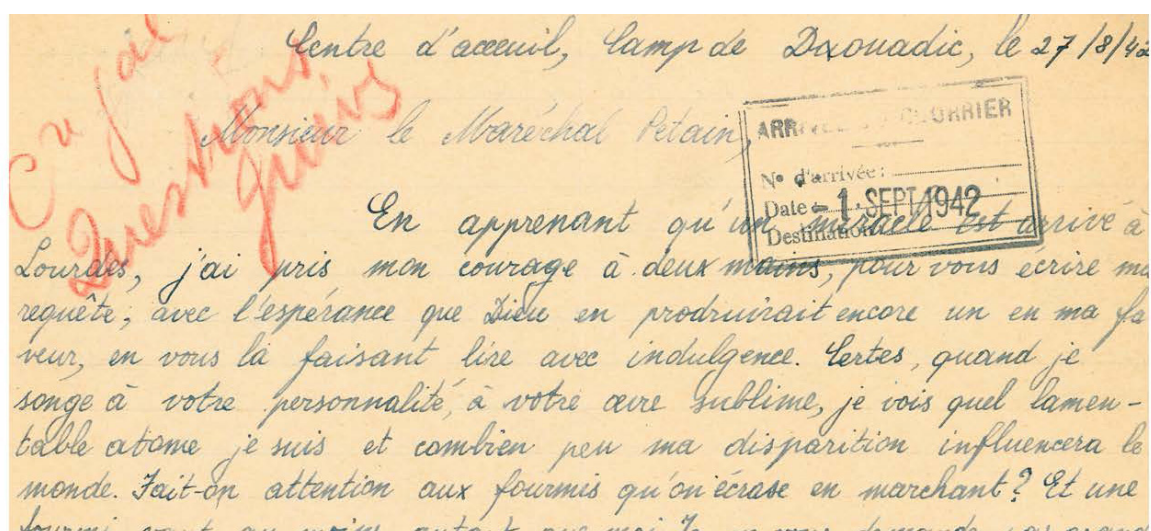 Centre d'acceuil, Camp de Daouadic, le 27/8/42
Cᵗ Gᵃˡ
Questions
Juives
Monsieur le Maréchal Petain,
ARRIVÉE COURRIER
N° d'arrivée :
Date - 1. SEPT 1942
Destination
En apprenant qu'un miracle est arrivé à
Lourdes, j'ai pris mon courage à deux mains, pour vous ecrire ma
requête, avec l'espérance que Dieu en prodruirait encore un en ma fa
veur, en vous la faisant lire avec indulgence. Certes, quand je
songe à votre personnalité, à votre œvre sublime, je vois quel lamen-
table atome je suis et combien peu ma disparition influencera le
monde. Fait-on attention aux fourmis qu'on écrase en marchant? Et une
fourmi vaut au moins autant que moi. Je vous demande